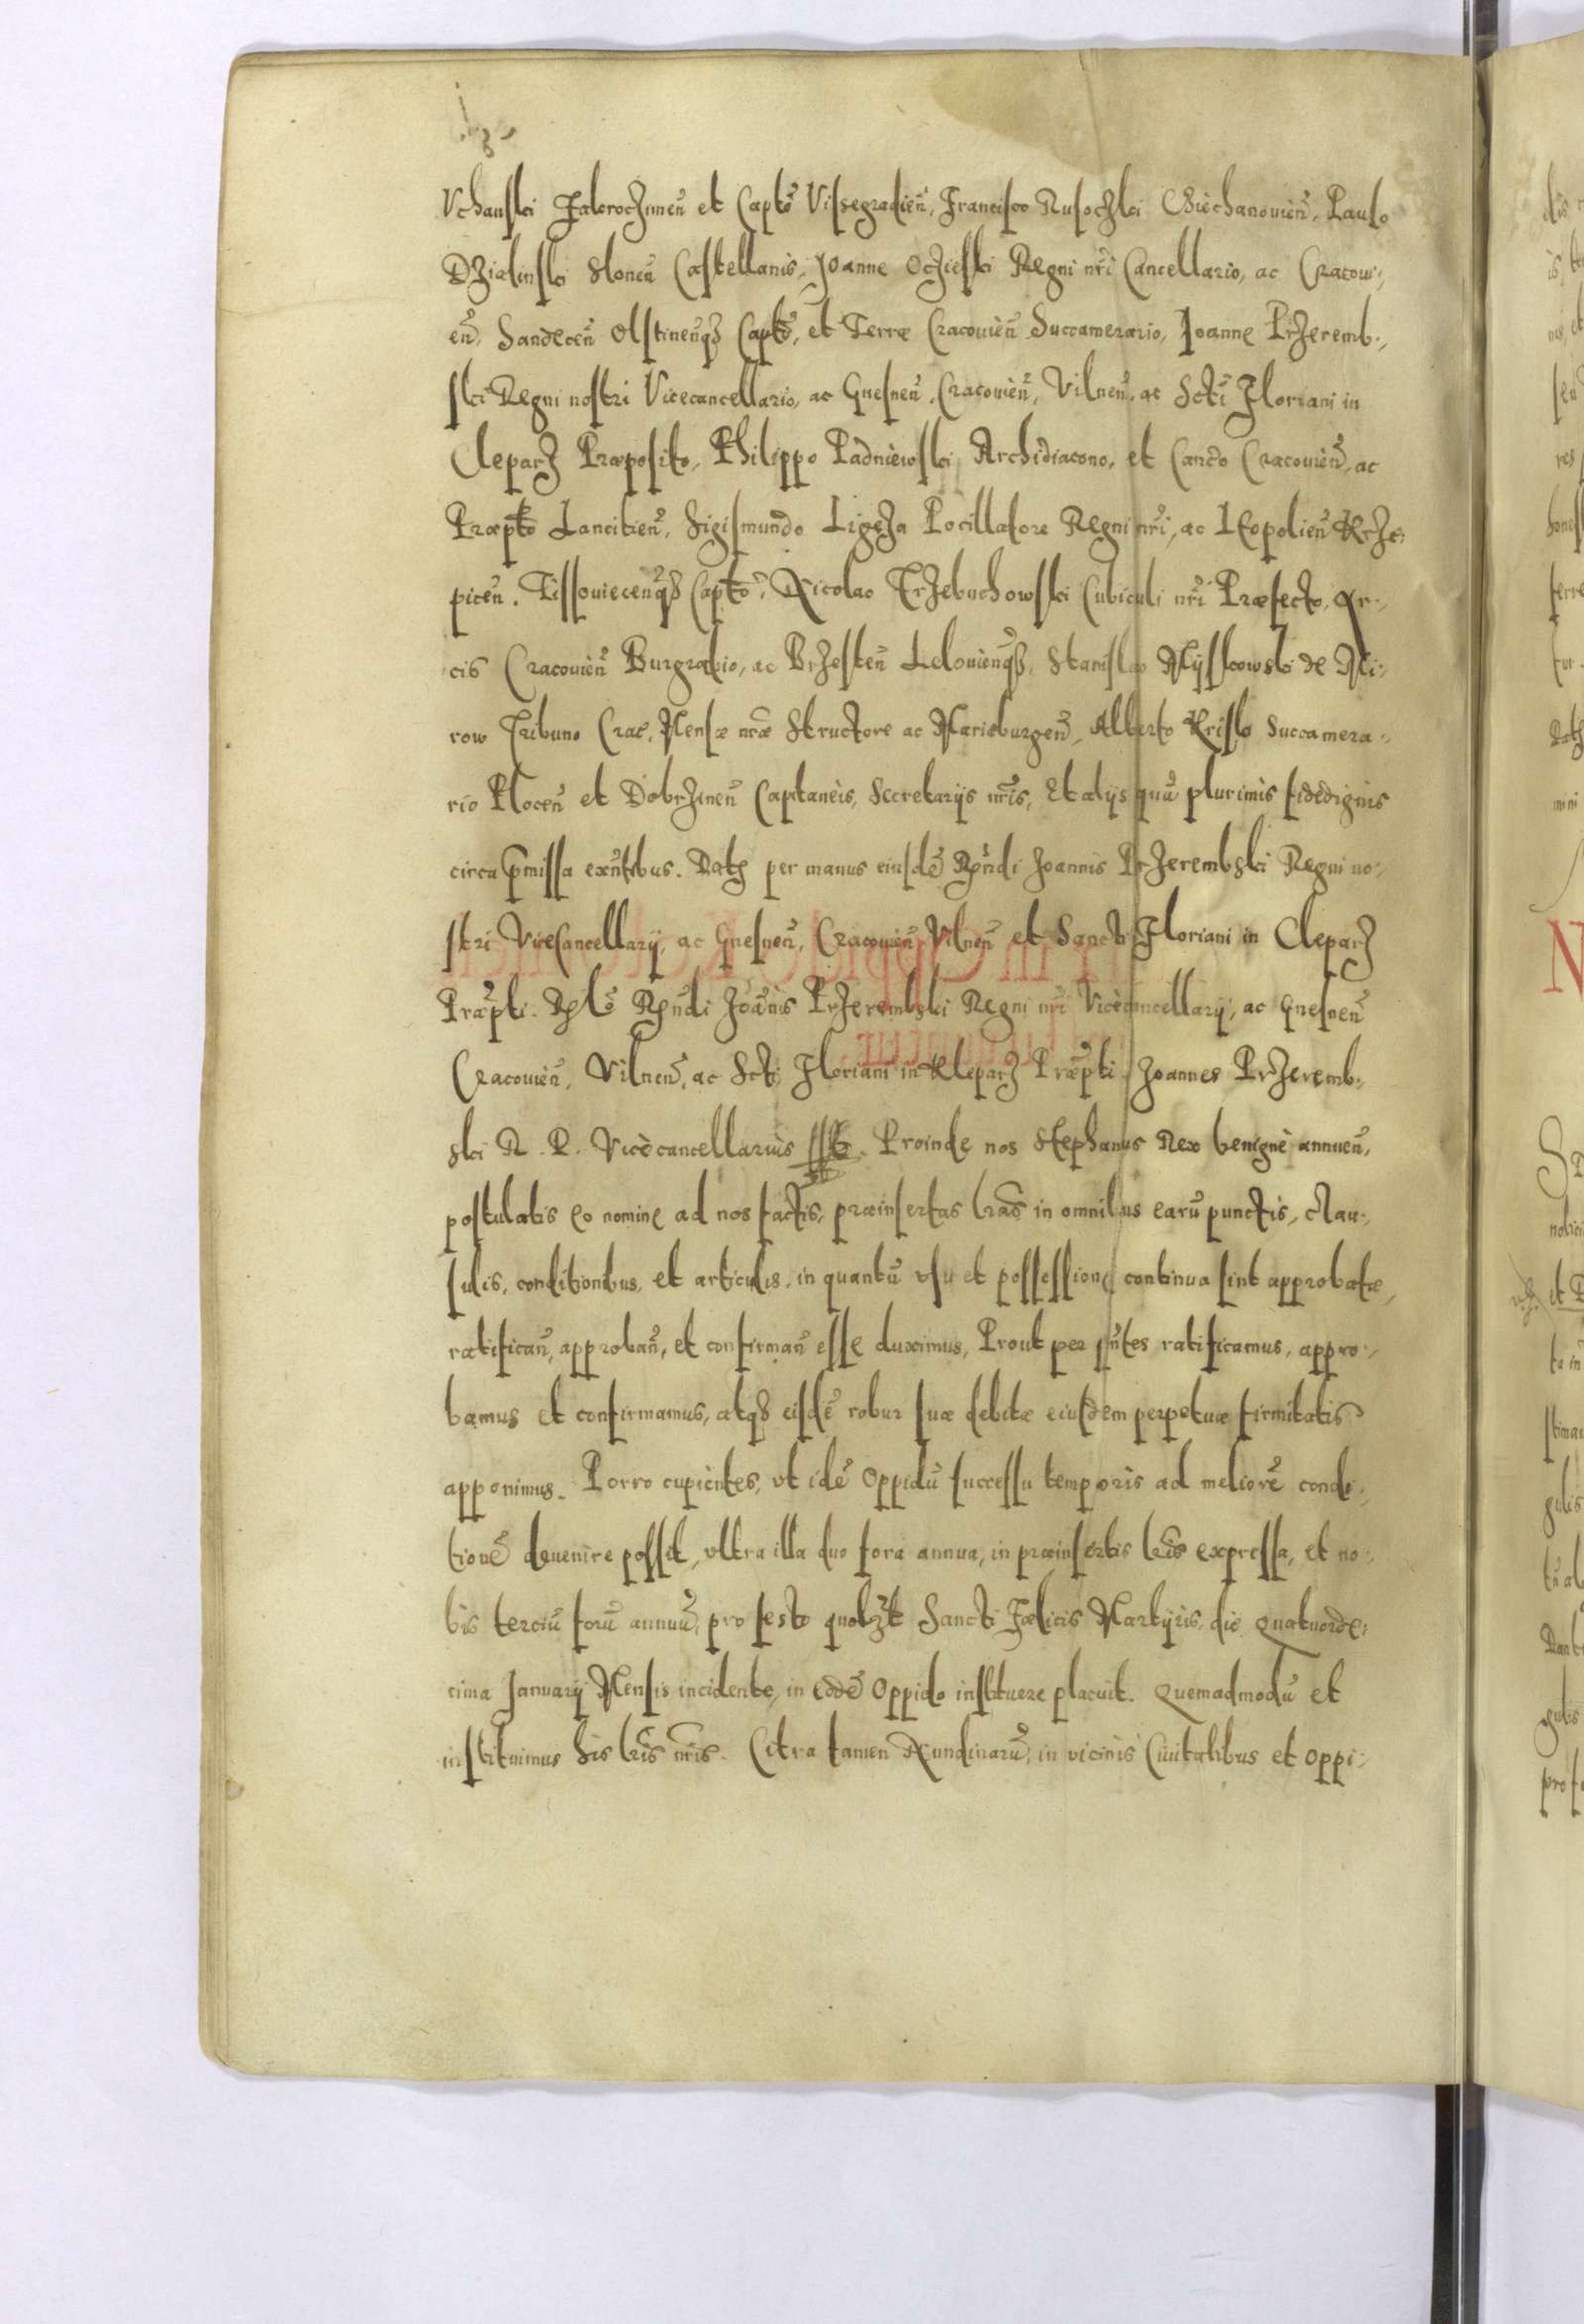 Vchanski Zakroczimeñ et Capto Vissegradieñ, Francisco Rusoczki Ciechanouieñ, Paulo
Dzialinski Sloneñ Castellanis, Joanne Oczieski Regni nri Cancellario, ac Cracoui-
eñ, Sandeceñ Olstineñqȝ Capto, et Terræ Cracouieñ Succamerario, Joanne Przeremb-
ski Regni nostri Vicecancellario, ac Gnesneñ, Cracouieñ, Vilneñ, ac Scti Floriani in
Cleparz Præposito, Philippo Padniewski Archidiacono, et Canco Cracouieñ, ac
Præpto Lancitieñ, Sigismundo Ligęza Pocillatore Regni nri, ac Leopolieñ Krze-
piceñ. Tissouieceñqȝ Capto, Nicolao Trzebuchowski Cubiculi nri Præfecto, Ar-
cis Cracouieñ Burgrabio, ac Brzesteñ Lelouieñqȝ, Stanislao Myszkowski de Mi-
row Tribuno Crac, Mensæ nræ Structore ac Marieburgeñ, Alberto Krisko Succamera-
rio Ploceñ et Dobrzineñ Capitaneis, Secretarijs nris, Et alijs quã plurimis fidedignis
circa pmissa exñtibus. Datȝ per manus eiusdẽ Rñdi Joannis Przerembski Regni no-
stri ViceCancellarij, ac Gnesneñ, Cracouieñ Vilneñ et Sancti Floriani in Cleparz
Præpti. Rlo Rñdi Joãnis Przerembski Regni nri Vicecancellarij, ac Gnesneñ
Cracouieñ, Vilneñ, ac Scti Floriani in Kleparz Præpti. Joannes Przeremb-
ski R. P. Vicecancellarius sst. Proinde nos Stephanus Rex benigne annueñ,
postulatis eo nomine ad nos factis, præinsertas lras in omnibus earũ punctis, clau-
sulis, conditionibus, et articulis, in quantũ vsu et possessione continua sint approbatæ,
ratificañ, approbañ, et confirmañ esse duximus, Prout per pñtes ratificamus, appro-
bamus et confirmamus, atqȝ eisdẽ robur suæ debitæ eiusdem perpetuæ firmitatis
apponimus. Porro cupientes, vt idẽ Oppidũ successu temporis ad meliorẽ condi-
tionẽ deuenire possit, vltra illa duo fora annua, in præinsertis lris expressa, et no-
bis terciũ forũ annuũ, pro festo Sancti Fælicis Martyris, die quatuorde-
cima Januarij Mensis incidente, in eodẽ Oppido instituere placuit. Quemadmodũ et
instituimus his lris nris. Citra tamen Nundinarũ, in vicinis Ciuitatibus et Oppi-